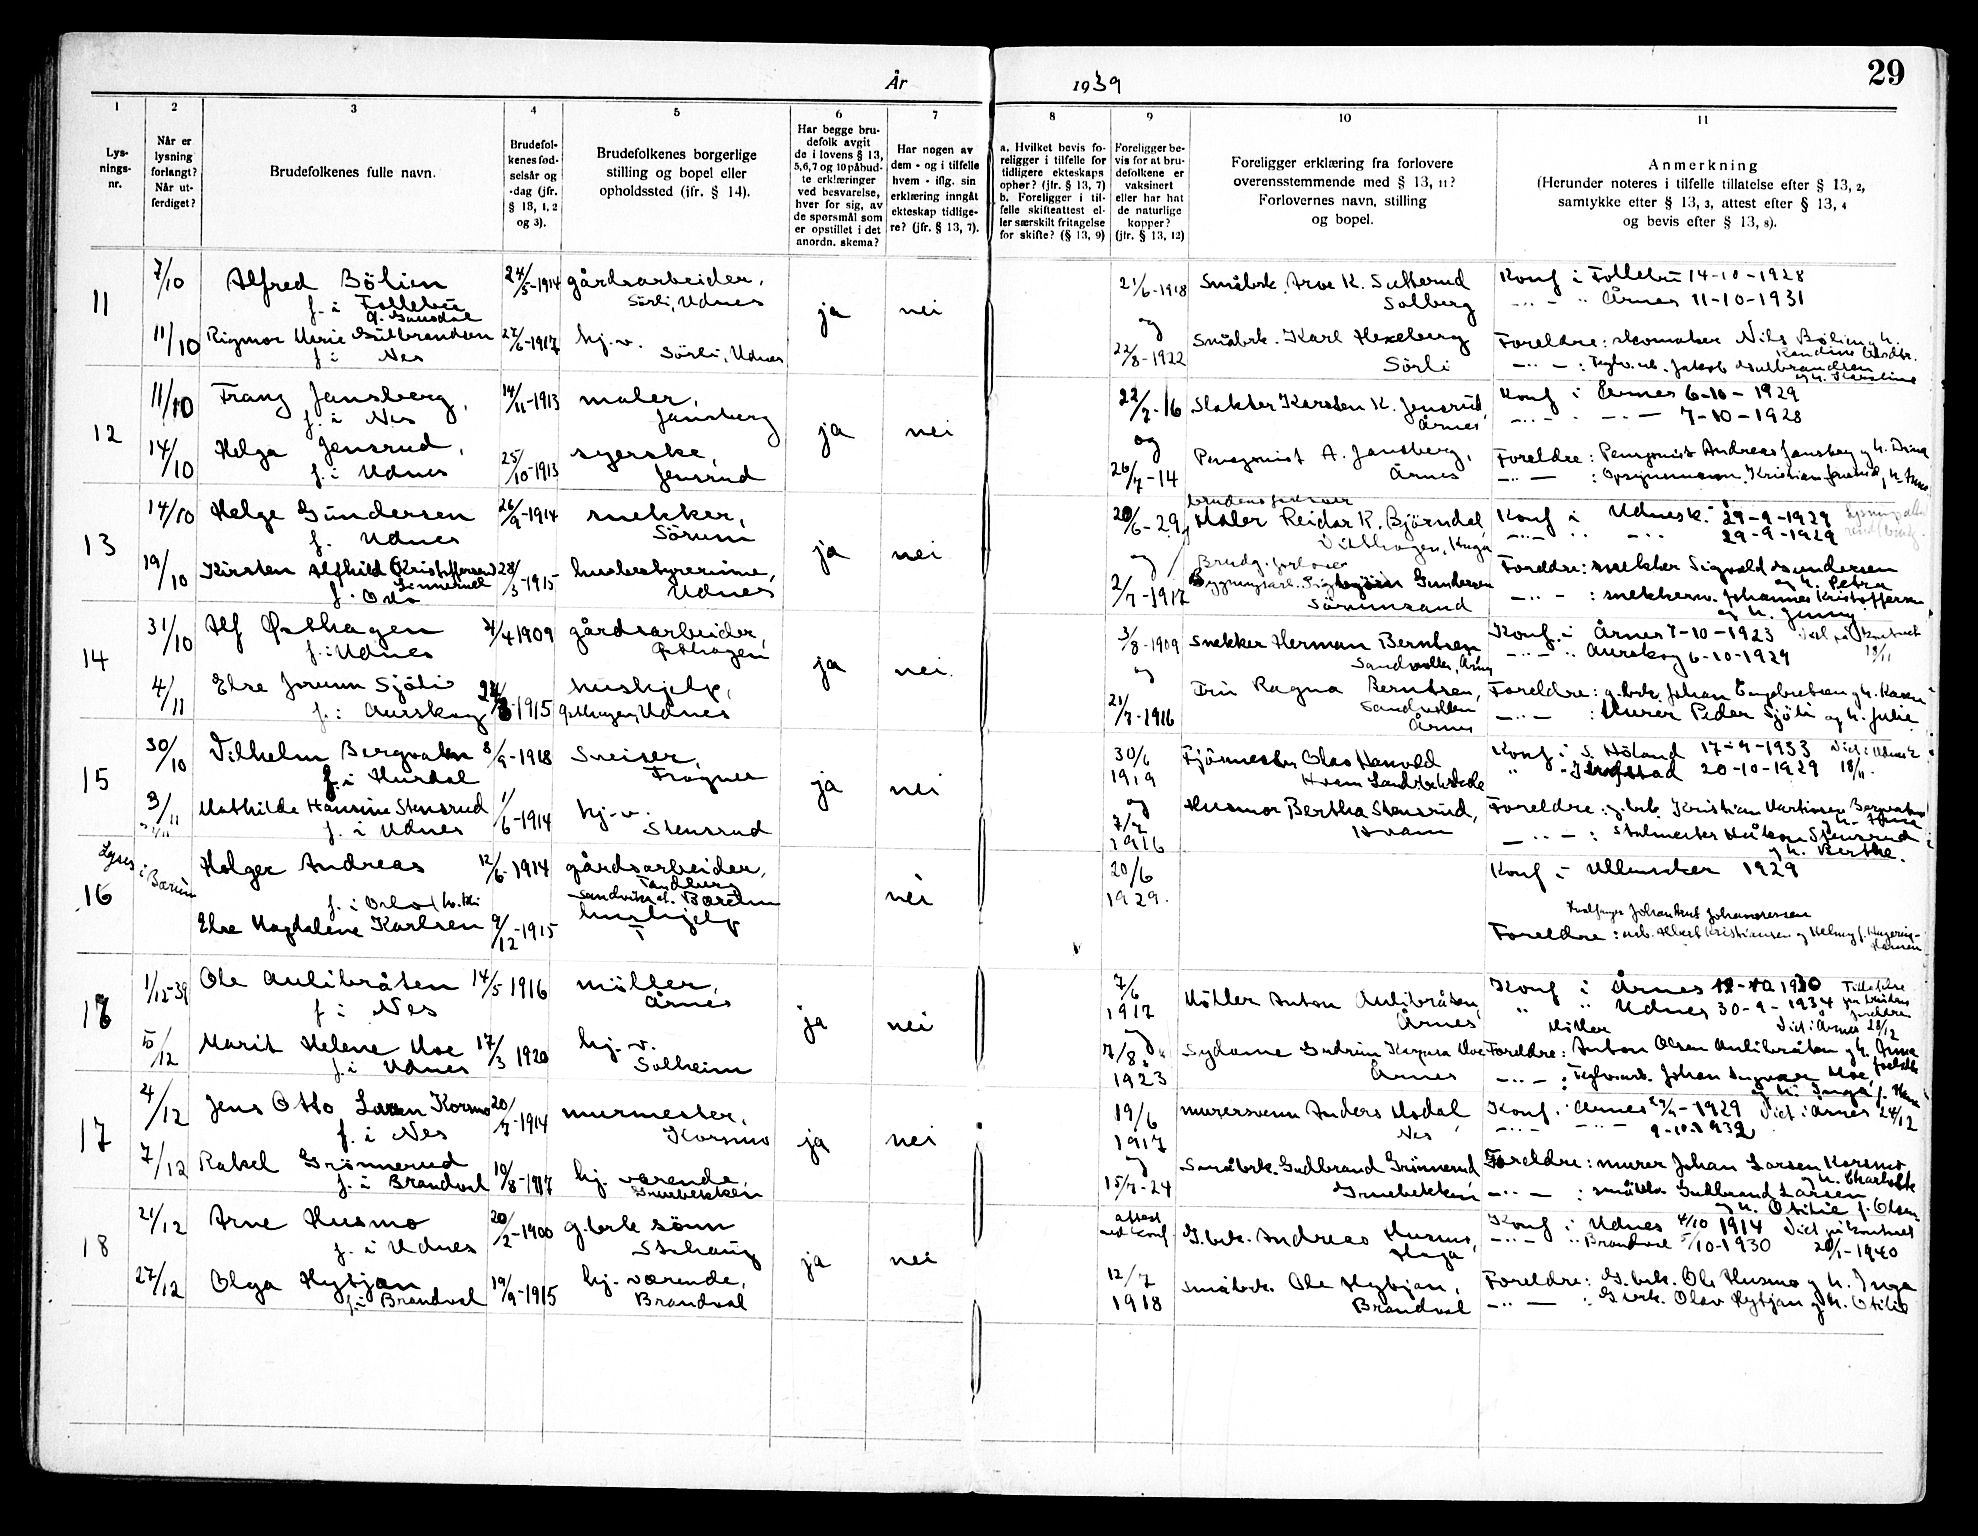 29
År 1939
1
2
3
4
5
6
7
8
9
10
11
Lys-
nings-
nr.
Når er
lysning
forlangt?
Når ut-
ferdiget?
Brudefolkenes fulle navn.
Brudefol-
kenes fød-
selsår og
-dag (jfr.
§ 13, 1, 2
og 3).
Brudefolkenes borgerlige
stilling og bopel eller
opholdssted (jfr. § 14).
Har begge bru-
defolk avgit
de i lovens § 13,
5,6,7 og 10 påbud-
te erklæringer
ved besvarelse,
hver for sig, av
de spørsmål som
er opstillet i det
anordn. skema?
Har nogen av
dem - og i tilfelle
hvem - iflg. sin
erklæring inngåt
ekteskap tidlige-
re? (jfr. § 13, 7).
a. Hvilket bevis fo-
religger i tilfelle for
tidligere ekteskaps
ophør? (jfr. § 13, 7)
b. Foreligger i til-
felle skifteattest el-
ler særskilt fritagelse
for skifte? (§ 13, 9)
Foreligger be-
vis for at bru-
defolkene er
vaksinert
eller har hat
de naturlige
kopper?
(jfr. § 13, 12)
Foreligger erklæring fra forlovere
overensstemmende med § 13, 11?
Forlovernes navn, stilling
og bopel.
Anmerkning
(Herunder noteres i tilfelle tillatelse efter § 13, 2,
samtykke efter § 13, 3, attest efter § 13, 4
og bevis efter § 13, 8).
11
7/10 Alfred Bölien 24/5-1914 gårdsarbeider, 21/6-1918 Småbrk. Arve K. Sutterud Konf i Follebu 14-10-1928
f. i Follebu Sörli, Udnes ja nei Solberg -"- " Årnes 11-10-1931
g. Gausdal og
11/10 Rigmor Marie Gulbrandsen 27/6-1917 hj. v. 22/8-1922 Småbrk. Karl Hexeberg Foreldre: skomaker Nils Bölien
f. i Nes Sörli, Udnes Sörli -"- : Teglv.arb. Jakob Gulbrandsen
og h. Karoline
12
11/10 Franz Jansberg, 14/11-1913 maler, 22/7-16 Slakter Karsten K. Jensrud, Konf i Årnes 6-10-1929
f. i Nes Jansberg ja nei Årnes -"- 7-10-1928
og
14/10 Helga Jensrud, 25/10-1913 syerske, 26/7-14 Pensjonist A. Jansberg, Foreldre: Pensjonist Andreas Jansberg og h. Drina
f. i Udnes Jensrud Årnes -"- : Opsynsmann Kristian Jensrud,
13
brudens forlover
14/10 Helge Gundersen 26/9-1914 snekker, 20/6-29 Maler Reidar K. Björndal, Konf i Udnesk. 29-9-1929
f. Udnes Sörum ja nei -"- 29-9-1929
og Brudg. forlover
19/10 Kirsten Alfhild (Kristoffersen) 28/3-1915 husbestyrerinne, 2/7-1917 Gundersen Foreldre: snekker Sigvald Gundersen
Linnerud Udnes Sörumsand og h. Petra
f. Oslo -"- : snekkerm. Johannes Kristoffersen
og h. Jenny
14
31/10 Alf Østhagen 4/4 1909 gårdsarbeider, 3/8-1909 Snekker Herman Berntsen Konf. i Årnes 7-10-1923
f. i Udnes Østhagen ja nei. Sandvollen, Årnes -"- " Aurskog 6-10-1929 18/11
og
4/11 Else Jorunn Sjöli 1915 hushjelp, 21/7-1916 Fru Ragna Berntsen, Foreldre: g.brk. Johan Engebretsen og h. Karen
f. i Aurskog Østhagen, Udnes Sandvollen -"- : Murer Peder Sjöli og h. Julie
Årnes
15
30/10 Vilhelm Bergvatn 8/9-1918 Sveiser, 30/6 Fjösmester Olav Hanvold Konf i S. Höland 17-9-1933
f. i Hurdal Frogner ja nei 1919 Hvam Landbrukskole 20-10-1929 18/11.
og
3/11 Mathilde Hansine Stensrud 1/6-1914 hj. v. 7/7 Husmor Bertha Stensrud, Foreldre: g.brk. Kristian Martinsen Bergvatn
f. i Udnes Stensrud 1916 Hvam -"- : Stalmester Håkon Stensrud
og h. Berthe.
16
Lyses i Bærum
Holger Andreas 12/6-1914 gårdsarbeider, 20/6 Konf i Ullensaker 1929
Tandberg 1929.
f. i Oslo Sandvika st. Bærum nei
Else Magdalene Karlsen 9/12-1915 hushjelp Foreldre: arb. Albert Kristiansen og Helmy f.
Hansen
18
1/12-39 Ole Aulibråten 14/5 1916 möller, 7/6 Möller Anton Aulibråten, Konf i Årnes 12-10 1930 Tillatelse
f. i Nes Årnes ja nei 1917 Årnes " Udnes 30-9-1934
og Möller Viet i Årnes 28/12
15/12 Marit Helene Moe 17/3 1920 hj. v. 7/8 Sydame Gudrun Kaspara Moe Foreldre: Anton Olsen Aulibråten og h. Anna
f. i Udnes Solheim 1923 Årnes -"- : Teglv.arb. Johan Ingvar Moe,
og h. Inga f.
17
4/12 Jens Otto Larsen Korsmo 20/7-1914 murmester, 19/6 murersvenn Anders Modal, Konf. i Årnes 29/9-1929 Viet i Årnes 24/12
f. i Nes Korsmo ja nei 1917 Nes -"- 9-10-1932
og
7/12 Rakel Grönnerud 19/8-1917 hj. værende, 15/7-24 Småbrk. Gudbrand Grönnerud Foreldre: murer Johan Larsen Korsmo
f. i Brandval Gruebekken Gruebekken og h. Charlotte
-"- : småbrk. Gudbrand Larsen
og h. Otilie f. Olsen
18
21/12 Arne Husmo 20/2-1900 g.brk sönn attest G.brk. Andreas Husmo, Konf i Udnes 4/10 1914
f. i Udnes Stihaug ja nei ved konf Haga -"- " Brandval 5/10-1930 20/1-1940
27/12 Olga Hytjan 19/9-1915 hj. værende, 12/7 Småbrk. Ole Hytjan, Foreldre: G.brk. Ole Husmo og h. Inga
f. i Brandval Brandval 1918 Brandval -"- : G.brk. Olav Hytjan og h. Otilie